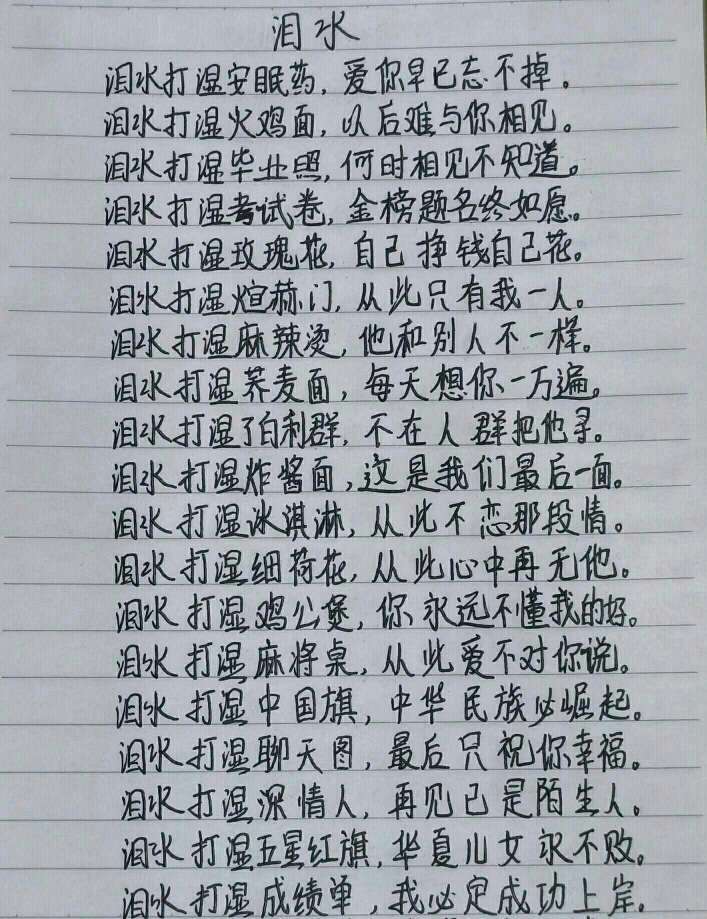 泪水
泪水打湿安眠药，爱你早已忘不掉。
泪水打湿火鸡面，以后难与你相见。
泪水打湿毕业照，何时相见不知道。
泪水打湿考试卷，金榜题名终如愿。
泪水打湿玫瑰花，自己挣钱自己花。
泪水打湿煊赫门，从此只有我一人。
泪水打湿麻辣烫，他和别人不一样。
泪水打湿荞麦面，每天想你一万遍。
泪水打湿了白利群，不在人群把他寻。
泪水打湿炸酱面，这是我们最后一面。
泪水打湿冰淇淋，从此不恋那段情。
泪水打湿细荷花，从此心中再无他。
泪水打湿鸡公煲，你永远不懂我的好。
泪水打湿麻将桌，从此爱不对你说。
泪水打湿中国旗，中华民族必崛起。
泪水打湿聊天图，最后只祝你幸福。
泪水打湿深情人，再见已是陌生人。
泪水打湿五星红旗，华夏儿女永不败。
泪水打湿成绩单，我必定成功上岸。